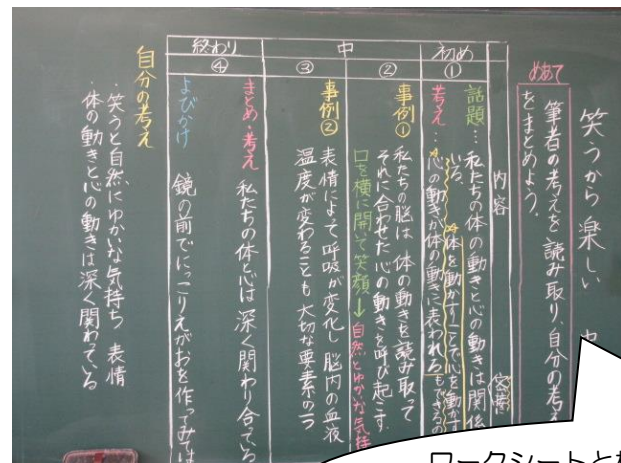 笑うから楽しい
めあて
筆者の考えを読み取り、自分の考え
をまとめよう。
内容
初め
①
話題…私たちの体の動きと心の動きは関係
いる。体を動かすことで心を動かす
考え…心の動きが体の動きに表われる
もできるの
中
②
事例①
私たちの脳は、体の動きを読み取って
それに合わせた心の動きを呼び起こす
口を横に開いて笑顔→自然とゆかいな気持
③
事例②
表情によって呼吸が変化し脳内の血液
温度が変わることも大切な要素の一つ
終わり
④
まとめ・考え
私たちの体と心は深く関わり合っている
よびかけ
鏡の前でにっこりえがおを作ってみては
自分の考え
・笑うと自然にゆかいな気持ち 表情
・体の動きと心の動きは深く関わっている
ワークシートと